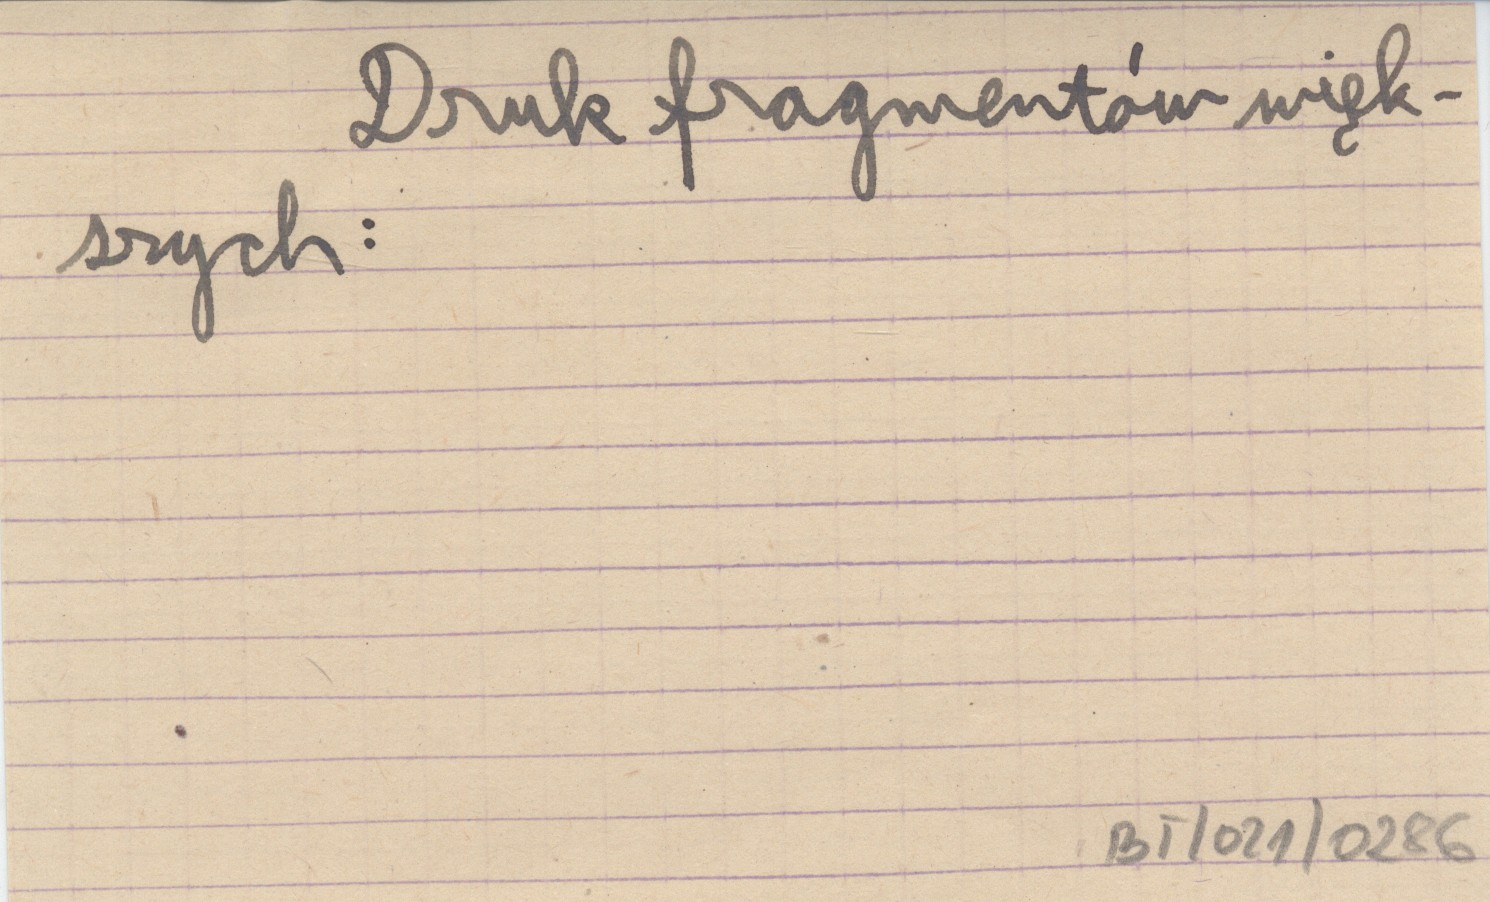 Druk fragmentów więk-
szych:
BT/021/0286